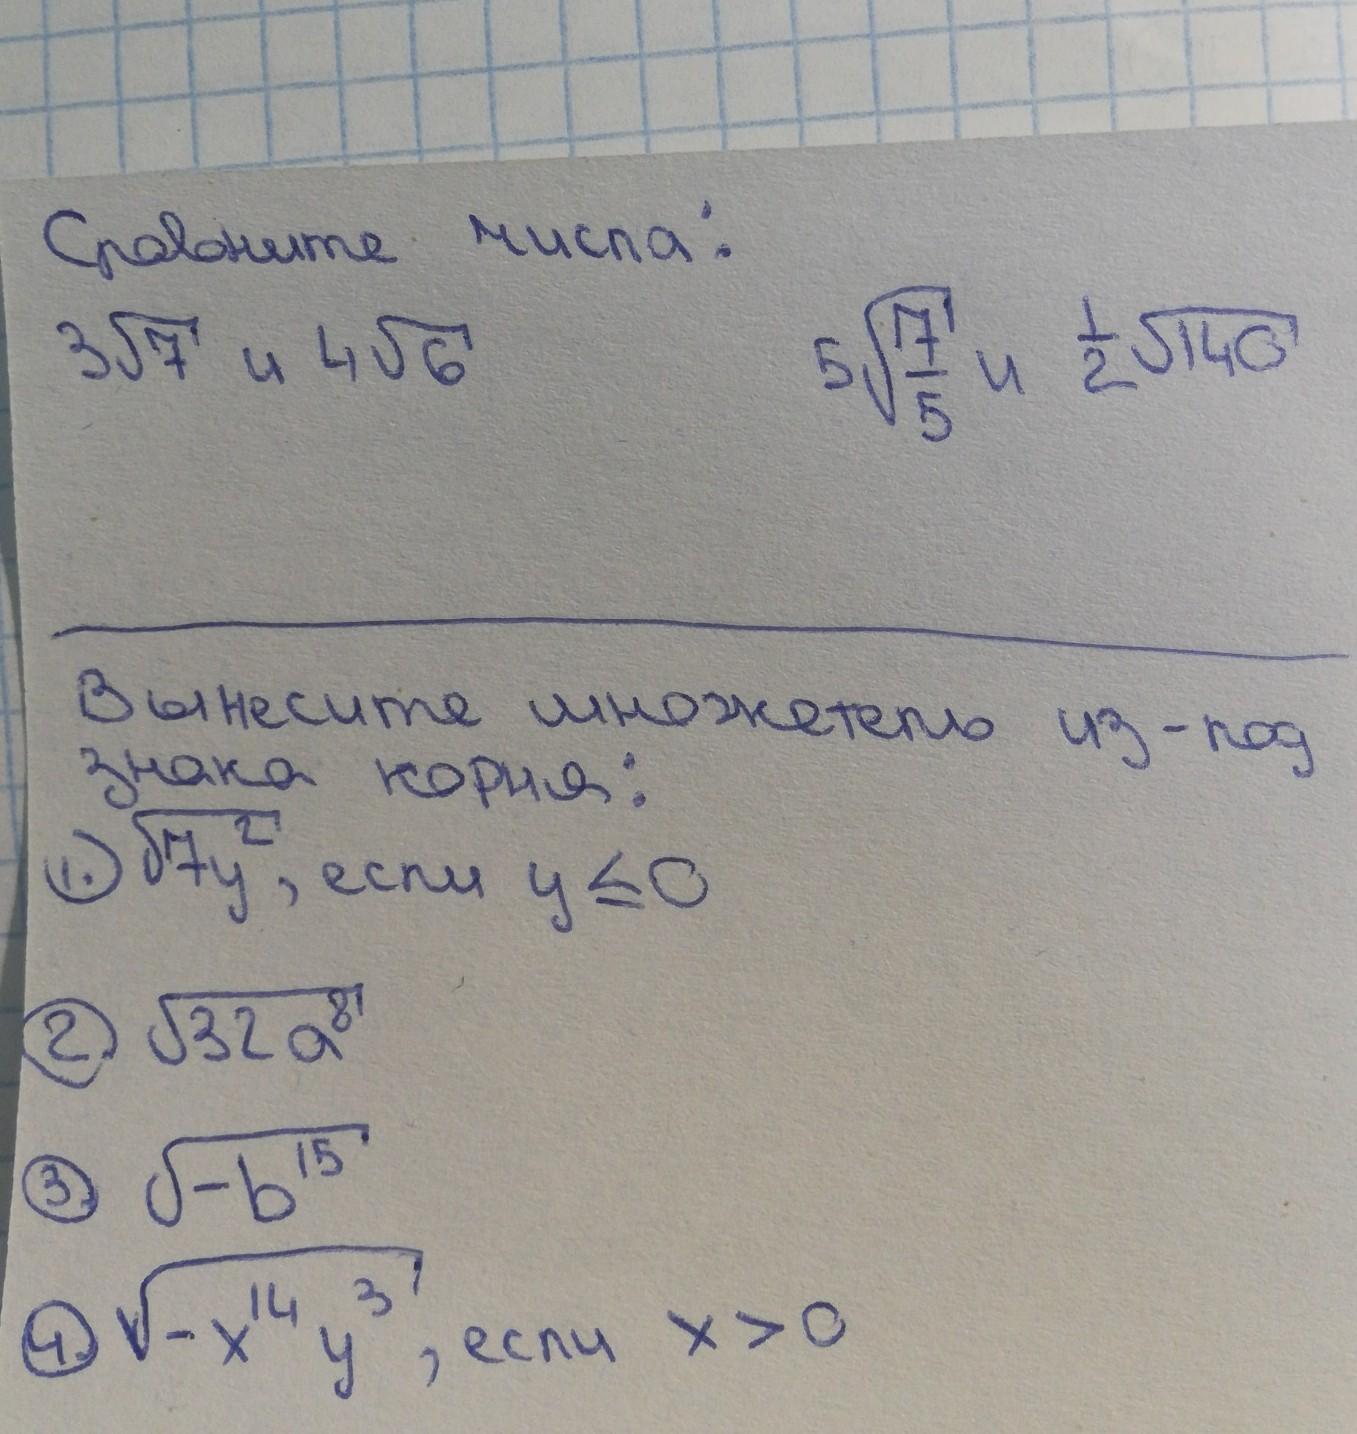 Сравните числа:
3√7 и 4√6 5√(7/5) и 1/2√140
Вынесите множетель из-под
знака корня:
1. √7y², если y ≤ 0
2. √32a⁸
3. √-b¹⁵
4. √-x¹⁴y³, если x > 0